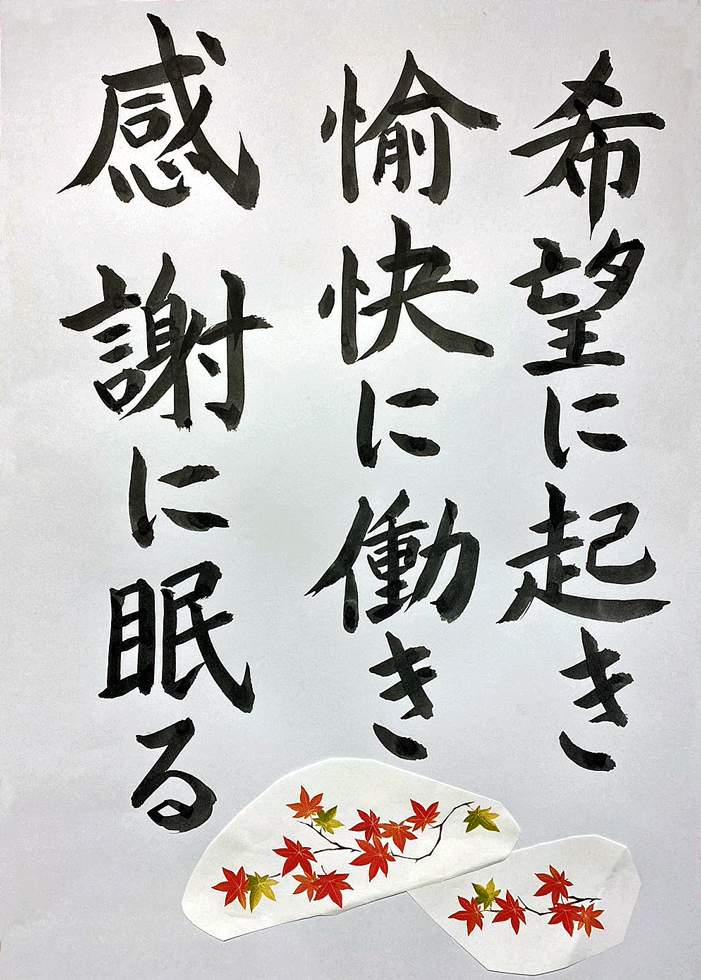 希望に起き
愉快に働き
感謝に眠る